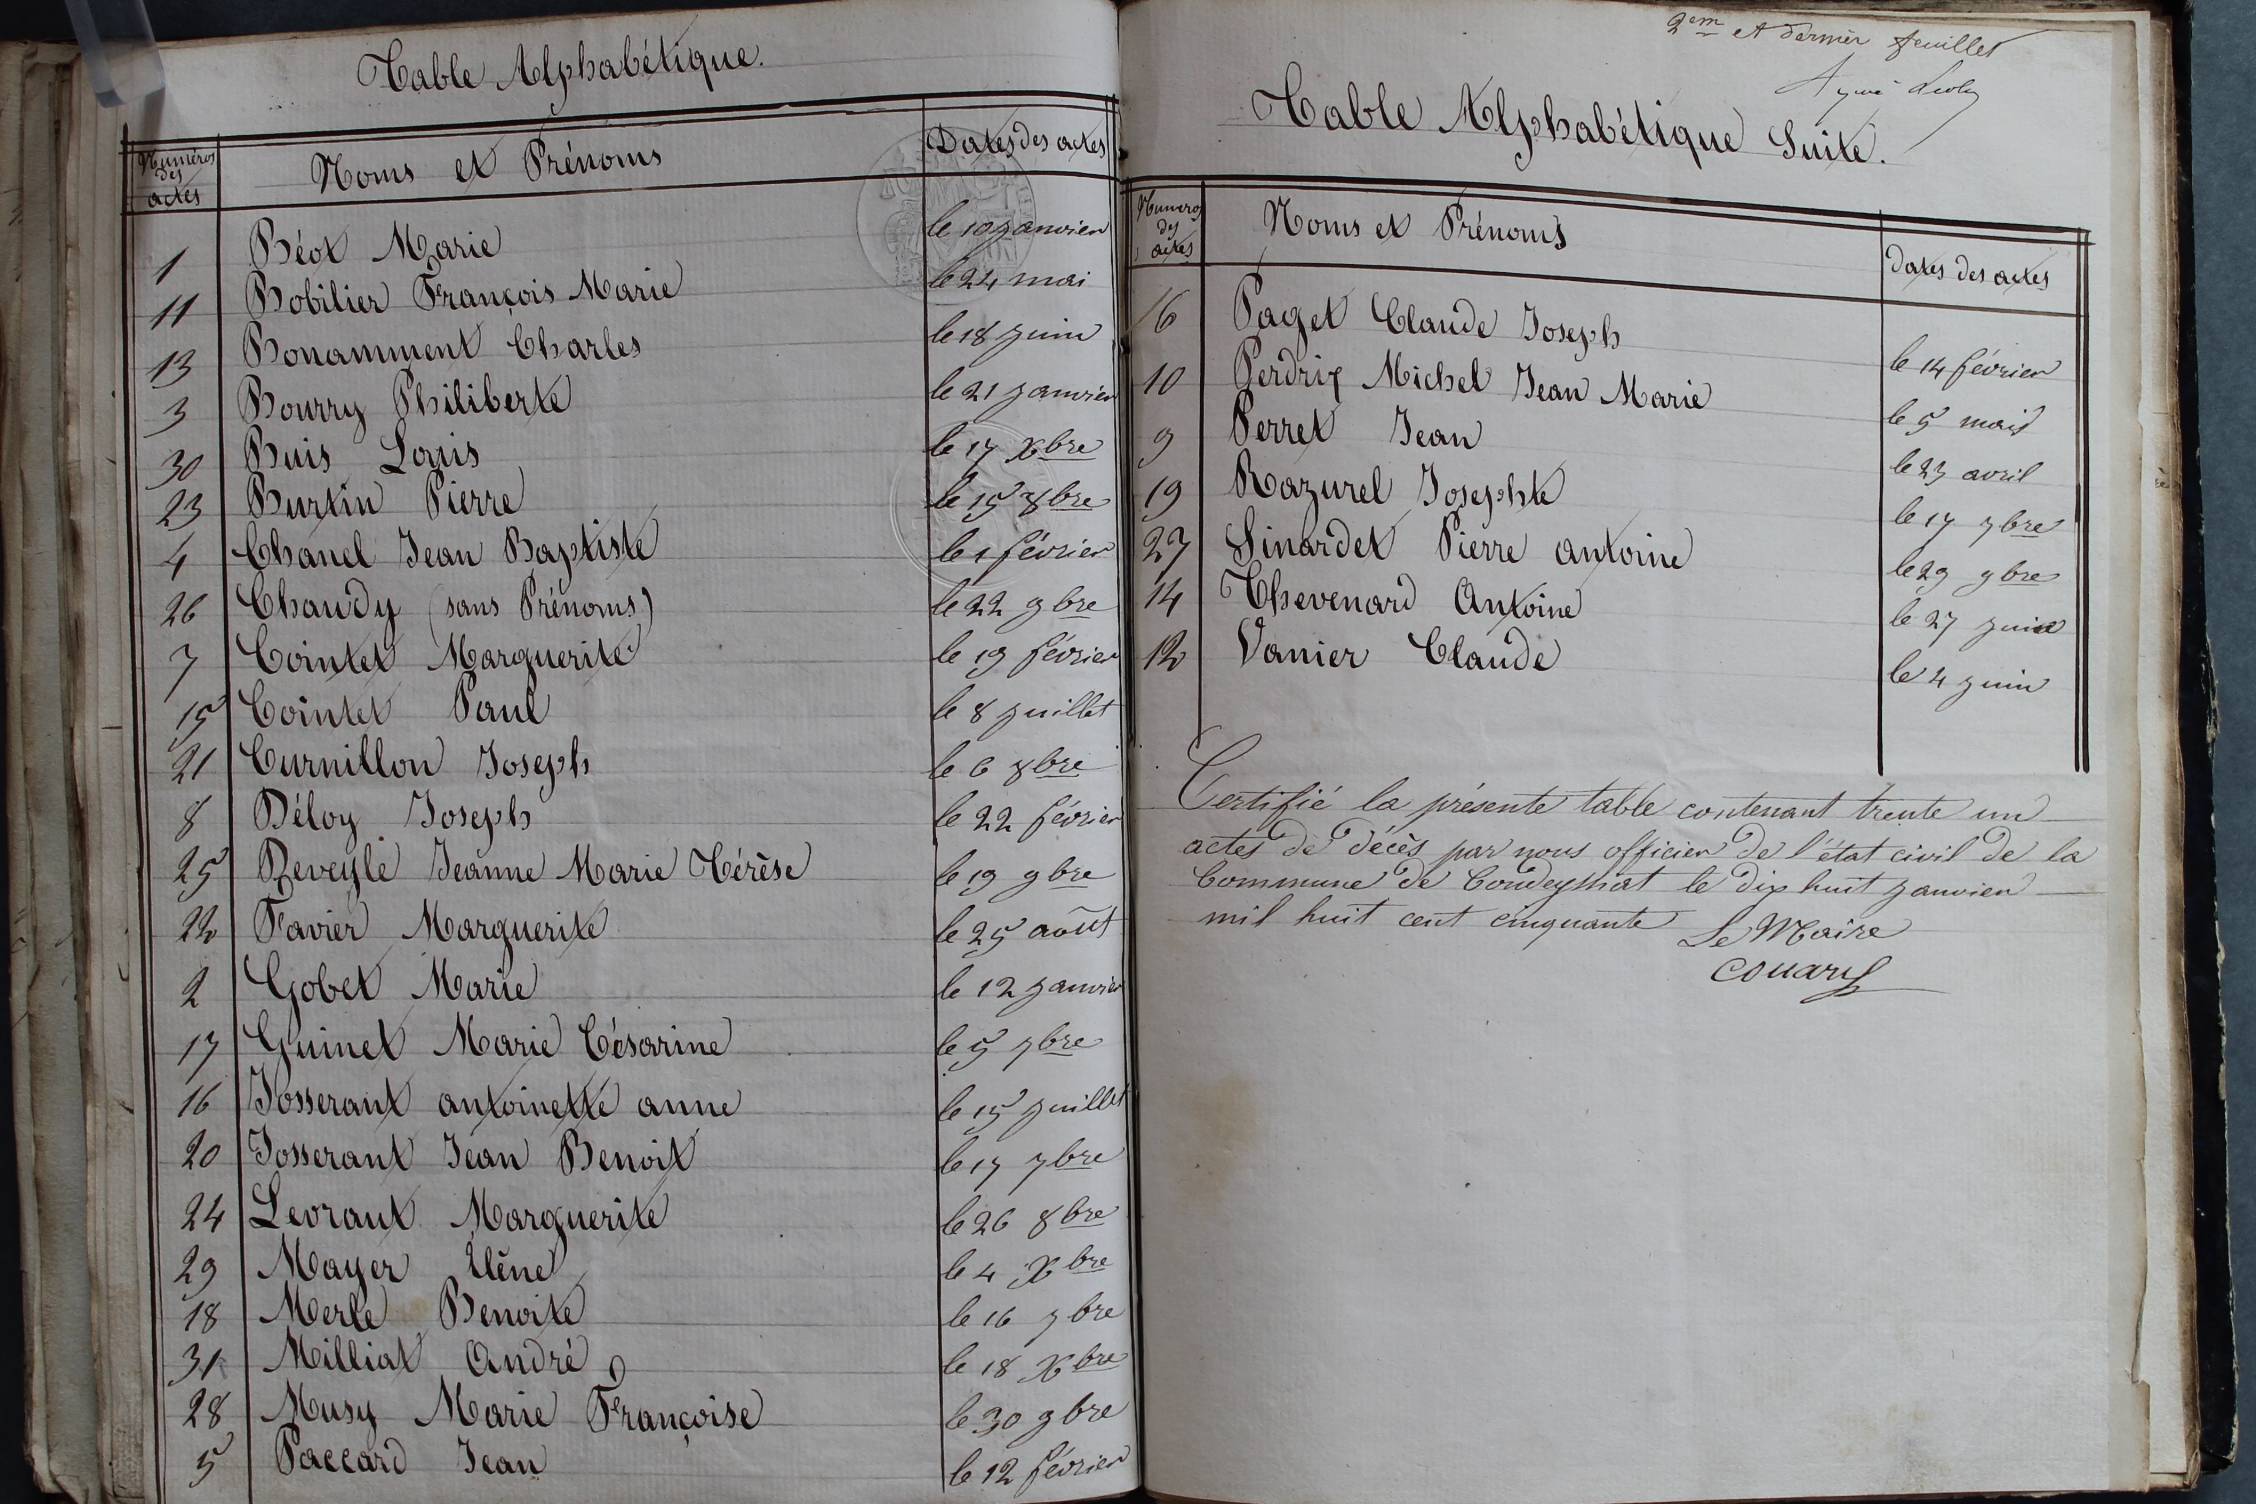 Table Alphabétique.
Numéros des actes Noms et Prénoms Dates des actes
1 Béot Marie le 10 janvier
11 Bobilier François Marie le 24 mai
13 Bonamment Charles le 18 juin
3 Bourry Philiberte le 21 janvier
30 Buis Louis le 17 Xbre
23 Burtin Pierre le 15 8bre
4 Chanel Jean Baptiste le 1 février
26 Chaudy (sans Prénoms) le 22 9bre
7 Cointet Marguerite le 19 février
15 Cointet Paul le 8 juillet
21 Curnillon Joseph le 6 8bre
8 Déloy Joseph le 22 février
25 Deveyle Jeanne Marie Térèse le 19 9bre
22 Favier Marguerite le 25 août
2 Gobet Marie le 12 janvier
17 Guinet Marie Césarine le 5 7bre
16 Josserant antoinette anne le 15 juillet
20 Josserant Jean Benoit le 17 7bre
24 Levraut Marguerite le 26 8bre
29 Mayer Élène le 4 Xbre
18 Merle Benoite le 16 7bre
31 Milliat André le 18 Xbre
28 Musy Marie Françoise le 30 9bre
5 Paccard Jean le 12 février
2em et dernier feuillet
Table Alphabétique Suite.
Numeros des actes Noms et Prénoms Dates des actes
6 Paget Claude Joseph le 14 février
10 Perdrix Michel Jean Marie le 5 mais
9 Perret Jean le 23 avril
19 Razurel Josephte le 17 7bre
27 Sinardet Pierre antoine le 29 9bre
14 Thevenard Antoine le 27 juin
12 Vanier Claude le 4 juin
Certifié la présente table contenant trente un
actes de décès par nous officier de l'état civil de la
Commune de Condeyssiat le dix huit janvier
mil huit cent cinquante
Le Maire